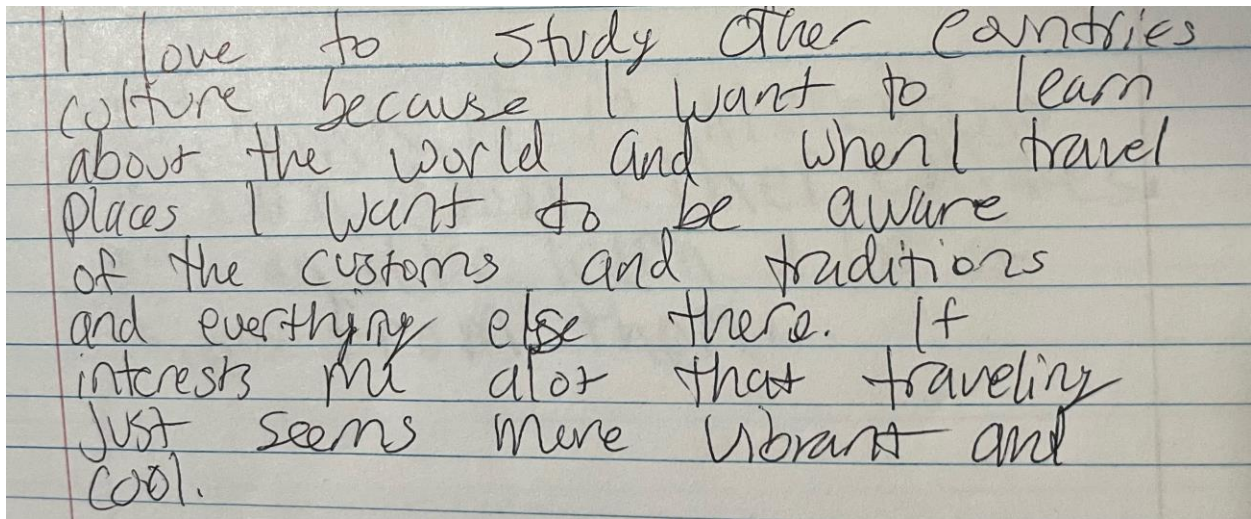 I love to study other countries
culture because I want to learn
about the world and when I travel
places I want to be aware
of the customs and traditions
and everthing else there. It
interests me alot that traveling
just seems more vibrant and
cool.